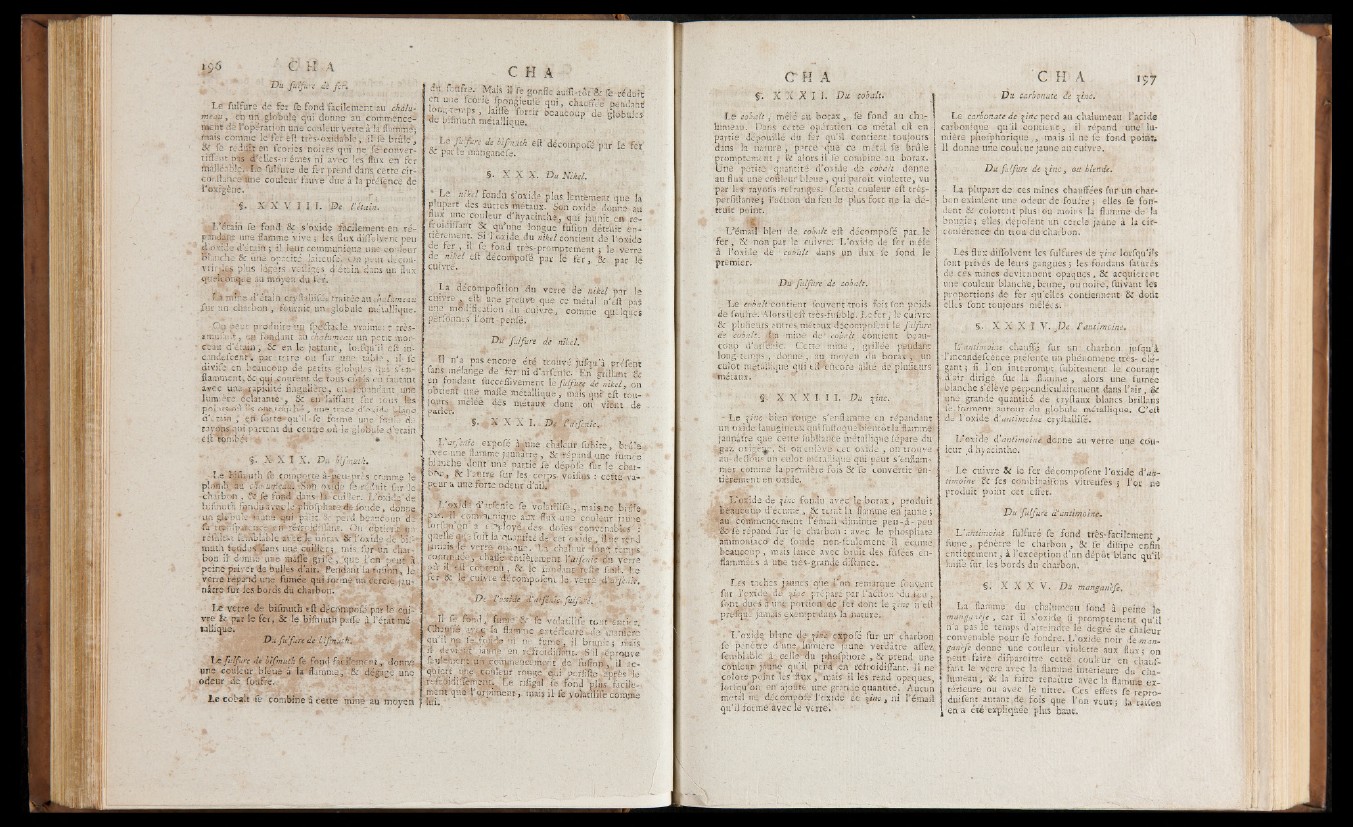 196 C H A
Du sulfure de fer.
Le sulfure de fer se fond facilement au chalu-
meau, en un globule qui donne au commence-
ment de l'opération une couleur verte à la flamme;
mais comme le fer est très-oxidable, il se brûle,
& se réduit en scories noires qui ne se conver-
tissent pas d'elles-mêmes ni avec les flux en fer
malléable. Le sulfure de fer prend dans cette cir-
constance une couleur fauve due à la présence de
l'oxigène.
§. X X V I I I. De l'étain.
L'étain se fond & s'oxide facilement en ré-
pandant une flamme vive; les flux dissolvent peu
d'oxide d'étain; il leur communique une couleur
blanche & une opacité laiteuse. On peut décou-
vrir les plus légers vestiges d'étain dans un flux
quelconque au moyen du fer.
La mine d'étain crystallisée traitée au chalumeau
sur un charbon, fournit un globule métallique.
On peut produire un spectacle vraiment très-
amusant, en fondant au chalumeau un petit mor-
ceau d'étain, & en le jettant, lorsqu'il est in-
candescent, par terre ou sur une table, il se
divise en beaucoup de petits globules qui s'en-
flamment, & qui courent de tous côtés en sautant
avec une rapidité singulière, en répandant une
lumière éclatante, & en laissant sur tous les
points où ils ont touché, une trace d'oxide blanc
d'étain; en sorte qu'il se forme une foule de
rayons qui partent du centre où le globule d'étain
est tombé.
§. X X I X. Du bismuth.
Le bismuth se comporte à-peu-près comme le
plomb au chalumeau. Son oxide se réduit sur le
charbon, & se fond dans la cuiller. L'oxide de
bismuth fondu avec le phosphate de soude, donne
un globule jaune qui pâlit & perd beaucoup de
sa transparence en refroidissant. On obtient un
résultat semblable avec le borax & l'oxide de bis-
muth fondus dans une cuiller; mais sur un char-
bon il donne une masse grise, que l'on peut à
peine priver de bulles d'air. Pendant la fusion, le
verre répand une fumée qui forme un cercle jau-
nâtre sur les bords du charbon.
Le verre de bismuth est décomposé par le cui-
vre & par le fer, & le bismuth passe à l'état mé-
tallique.
Du sulfure de bismuth.
Le sulfure de bismuth se fond facilement, donne
une couleur bleue à la flamme, & dégage une
odeur de soufre.
Le cobalt se combine à cette mine au moyen
C H A
du soufre. Mais il se gonfle aussi-tôt & se réduit
en une scorie spongieuse qui, chauffée pendant
long-temps, laisse sortir beaucoup de globules
de bismuth métallique.
Le sulfure de bismuth est décomposé par le fer
& par le manganèse.
§. X X X. Du Nikel.
Le nikel fondu s'oxide plus lentement que la
plupart des autres métaux. Son oxide donne au
flux une couleur d'hyacinthe, qui jaunit en re-
froidissant & qu'une longue fusion détruit en-
tièrement. Si l'oxide du nikel contient de l'oxide
de fer, il se fond très-promptement; le verre
de nikel est décomposé par le fer, & par le
cuivre.
La décomposition du verre de nikel par le
cuivre, est une preuve que ce métal n'est pas
une modification du cuivre, comme quelques
personnes l'ont pensé.
Du sulfure de nikel.
Il n'a pas encore été trouvé jusqu'à présent
sans mélange de fer ni d'arsenic. En grillant &
en fondant successivement le sulfure de nikel, on
obtient une masse métallique, mais qui est tou-
jours mêlée des métaux dont on vient de
parler.
§. X X X I. De l'arsenic.
L'arsenic exposé à une chaleur subite, brûle
avec une flamme jaunâtre, & répand une fumée
blanche dont une partie se dépose sur le char-
bon, & l'autre sur les corps voisins: cette va-
peur a une forte odeur d'ail.
L'oxide d'arsenic se volatilise, mais ne brûle
pas. Il communique aux flux une couleur jaune
lorsqu'on a employé des doses convenables:
quelle que soit la quantité de cet oxide, il ne rend
jamais le verre opaque. La chaleur long-temps
continuée, chasse entièrement l'arsenic du verre
où il est contenu, & le fondant reste seul. Le
fer & le cuivre décomposent le verre d'arsenic.
De l'oxide d'arsenic sulfuré.
Il se fond, fume & se volatilise tout entier.
Chauffé avec la flamme extérieure de manière
qu'il ne se fonde ni ne fume, il brunit; mais
il devient jaune en refroidissant. S'il éprouve
seulement un commencement de fusion, il ac-
quiert une couleur rouge qui persiste après le
refroidissement. Le réalgal se fond plus facile-
ment que l'orpiment, mais il se volatilise comme
lui.
C H A
§. X X X I I. Du cobalt.
Le cobalt, mêlé au borax, se fond au cha-
lumeau. Dans cette opération ce métal est en
partie dépouillé du fer qu'il contient toujours
dans la nature, parce que ce métal se brûle
promptement; & alors il se combine au borax.
Une petite quantité d'oxide de cobalt donne
au flux une couleur bleue, qui paroît violette, vu
par les rayons refrangés. Cette couleur est très-
persistante; l'action du feu le plus fort ne la dé-
truit point.
L'émail bleu de cobalt est décomposé par le
fer, & non par le cuivre. L'oxide de fer mêlé
à l'oxide de cobalt dans un flux se fond le
premier.
Du sulfure de cobalt.
Le cobalt contient souvent trois fois son poids
de soufre. Alors il est très-fusible. Le fer, le cuivre
& plusieurs autres métaux décomposent le sulfure
de cobalt. La mine de cobalt contient beau-
coup d'arsenic. Cette mine, grillée pendant
long-temps, donne, au moyen du borax, un
culot métallique qui est encore allié de plusieurs
métaux.
§. X X X I I I. Du zinc.
Le zinc bien rouge s'enflamme en répandant
un oxide lanugineux qui suffoque bientôt la flamme
jaunâtre que cette substance métallique sépare du
gaz oxigène. Si on enlève cet oxide, on trouve
au-dessous un culot métallique qui peut s'enflam-
mer comme la première fois & se convertir en-
tièrement en oxide.
L'oxide de zinc fondu avec le borax, produit
beaucoup d'écume, & teint la flamme en jaune;
au commencement l'émail diminue peu-à-peu
& se répand sur le charbon: avec le phosphate
ammoniaco de soude non-seulement il écume
beaucoup, mais lance avec bruit des fusées en-
flammées à une très-grande distance.
Les taches jaunes que l'on remarque souvent
sur l'oxide de zinc préparé par l'action du feu,
sont dues à une portion de fer dont le zinc n'est
presque jamais exempt dans la nature.
L'oxide blanc de zinc exposé sur un charbon
se pénètre d'une lumière jaune verdâtre assez
semblable à celle du phosphore, & prend une
couleur jaune qu'il perd en refroidissant. Il ne
colore point les flux, mais il les rend opaques,
lorsqu'on en ajoute une grande quantité. Aucun
métal ne décompose l'oxide de zinc, ni l'émail
qu'il forme avec le verre.
C H A 197
Du carbonate de zinc.
Le carbonate de zinc perd au chalumeau l'acide
carbonique qu'il contient, il répand une lu-
mière phosphorique, mais il ne se fond point.
Il donne une couleur jaune au cuivre.
Du sulfure de zinc, ou blende.
La plupart de ces mines chauffées sur un char-
bon exhalent une odeur de soufre; elles se fon-
dent & colorent plus ou moins la flamme de la
bougie; elles déposent un cercle jaune à la cir-
conférence du trou du charbon.
Les flux dissolvent les sulfures de zinc lorsqu'ils
sont privés de leurs gangues; les fondans saturés
de ces mines deviennent opaques, & acquièrent
une couleur blanche, brune, ou noire, suivant les
proportions de fer qu'elles contiennent & dont
elles sont toujours mêlées.
§. X X X I V. De l'antimoine.
L'antimoine chauffé sur un charbon jusqu'à
l'incandescence présente un phénomène très-élé-
gant; si l'on interrompt subitement le courant
d'air dirigé sur la flamme, alors une fumée
blanche s'élève perpendiculairement dans l'air, &
une grande quantité de crystaux blancs brillans
se forment autour du globule métallique. C'est
de l'oxide d'antimoine crystallisé.
L'oxide d'antimoine donne au verre une cou-
leur d'hyacinthe.
Le cuivre & le fer décomposent l'oxide d'an-
timoine & ses combinaisons vitreuses; l'or ne
produit point cet effet.
Du sulfure d'antimoine.
L'antimoine sulfuré se fond très-facilement,
fume, pénètre le charbon, & se dissipe enfin
entièrement, à l'exception d'un dépôt blanc qu'il
laisse sur les bords du charbon.
§. X X X V. Du manganèse.
La flamme du chalumeau fond à peine le
manganèse, car il s'oxide si promptement qu'il
n'a pas le temps d'atteindre le degré de chaleur
convenable pour se fondre. L'oxide noir de man-
ganèse donne une couleur violette aux flux; on
peut faire disparoître cette couleur en chauf-
fant le verre avec la flamme intérieure du cha-
lumeau, & la faire renaître avec la flamme ex-
térieure ou avec le nitre. Ces effets se repro-
duisent autant de fois que l'on veut; la raison
en a été expliquée plus haut.